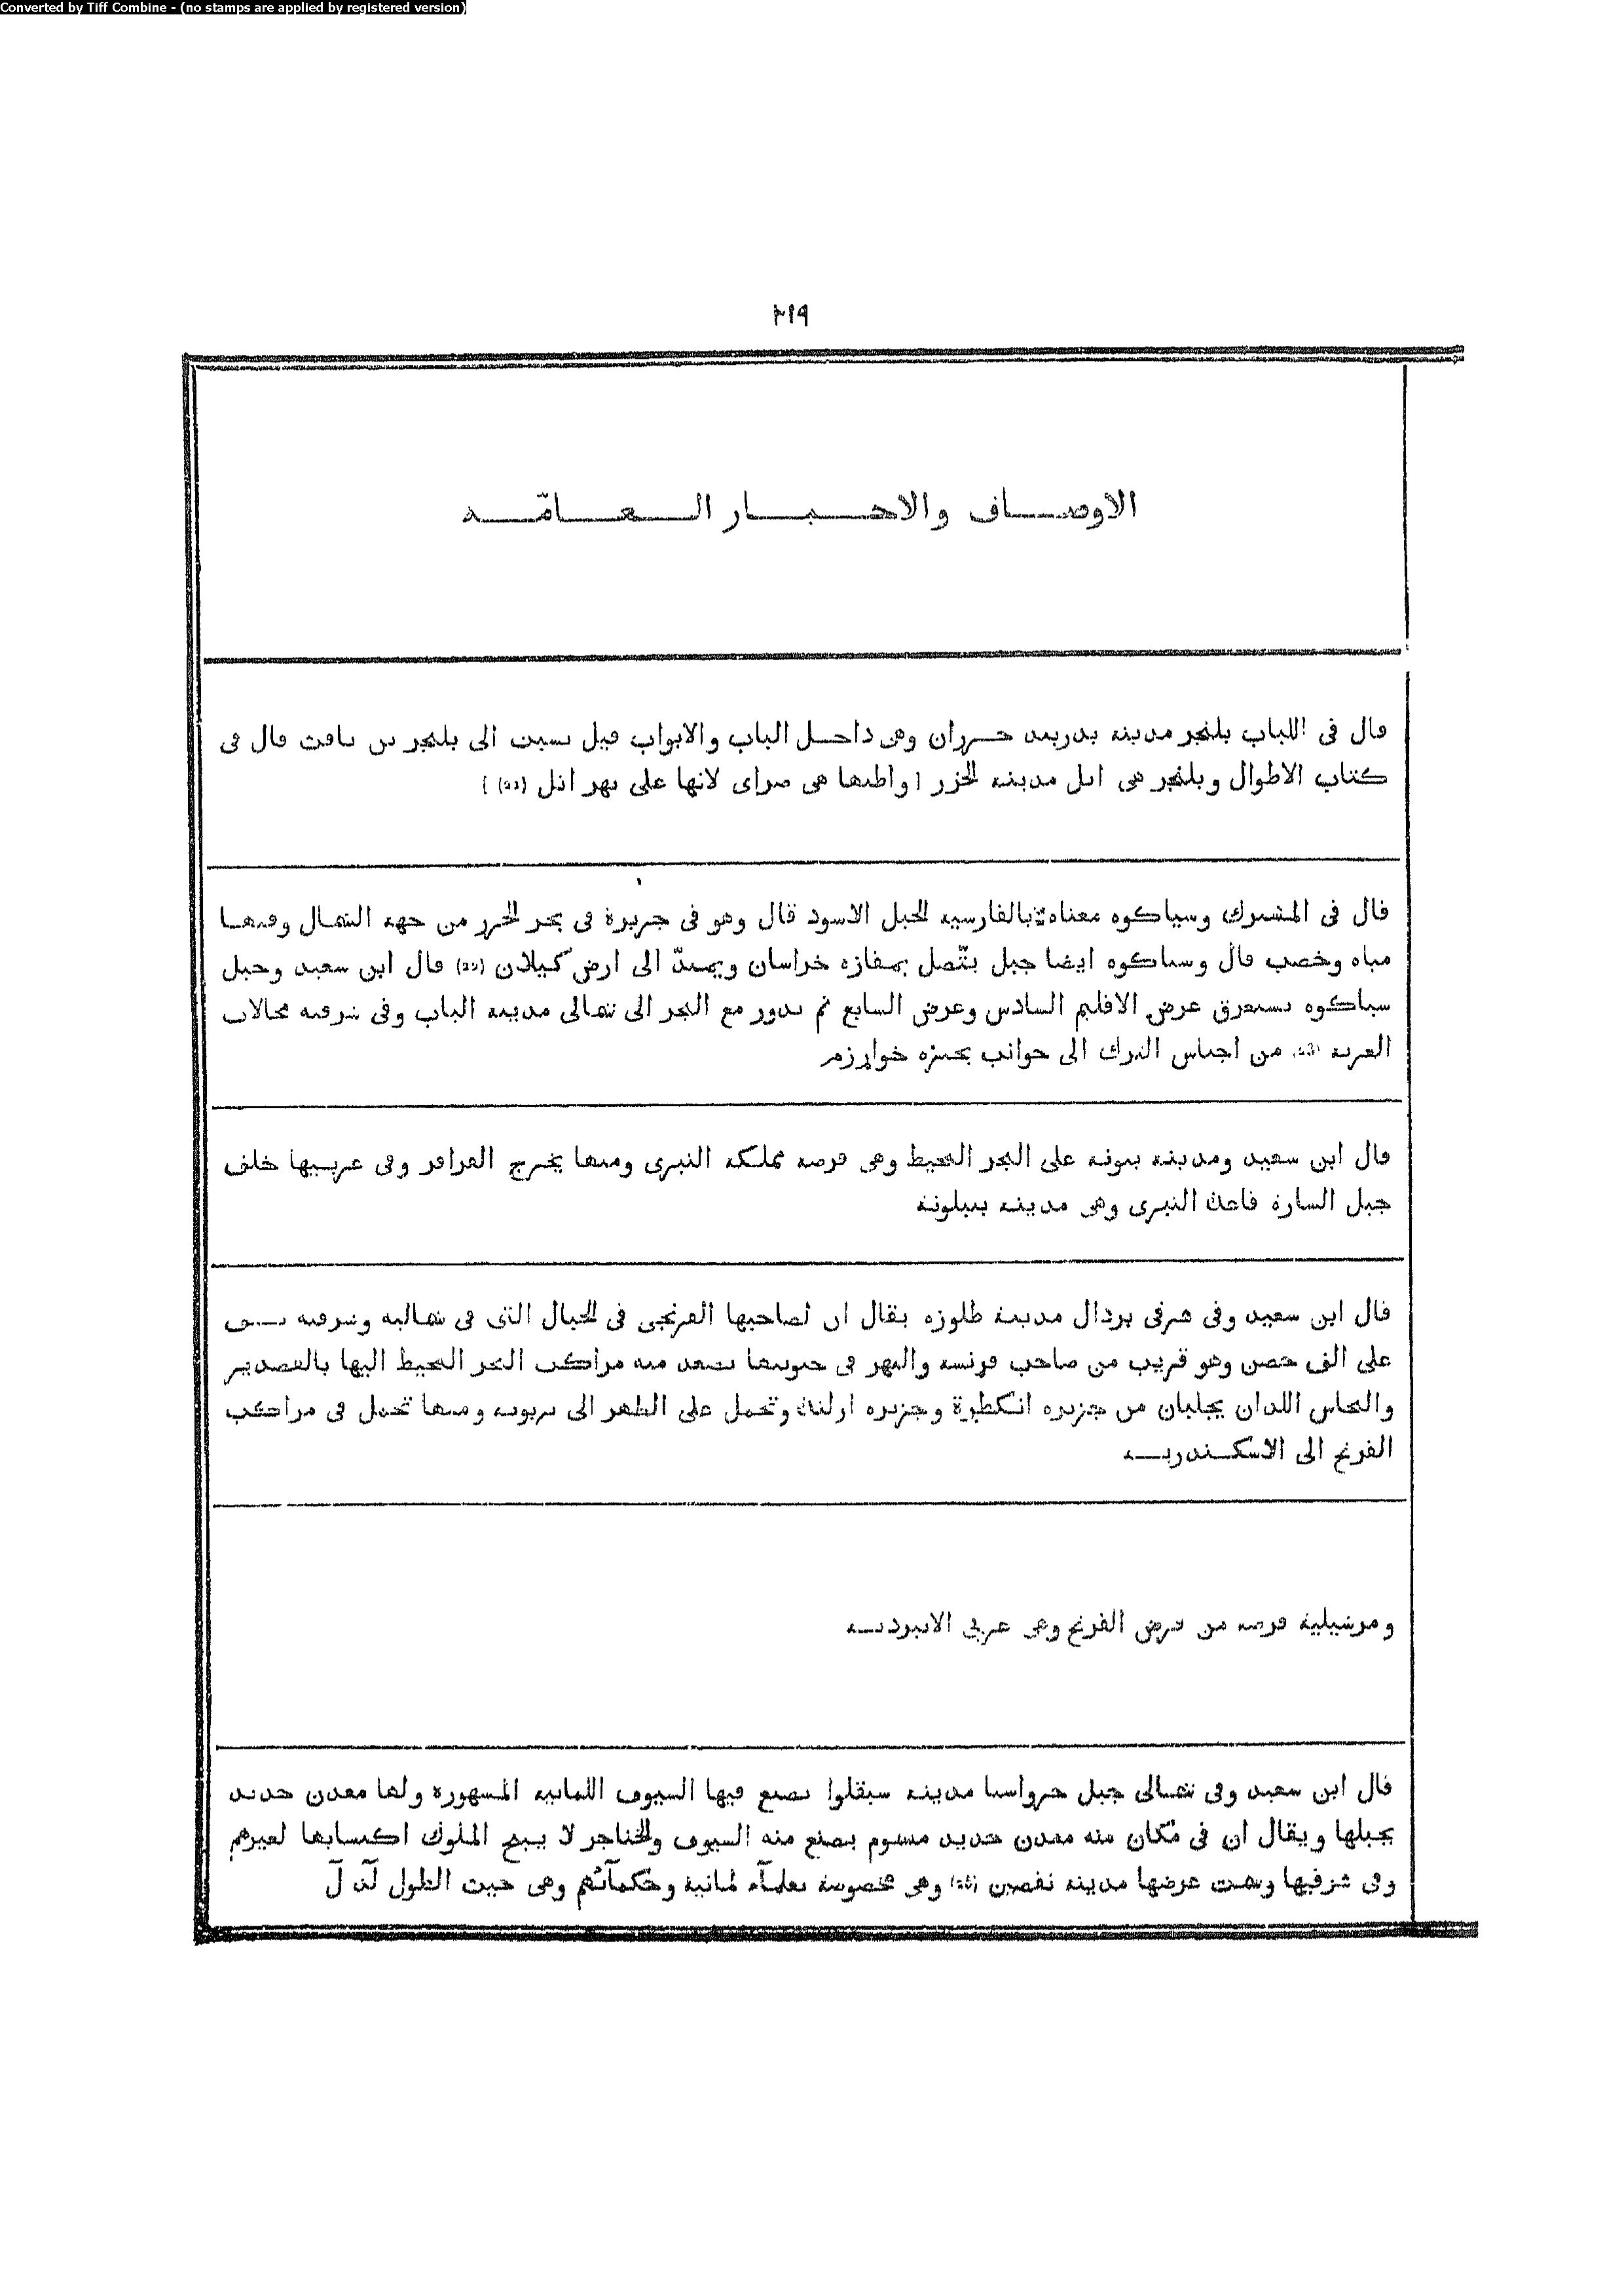 Converted by Tiff Combine - (no stamps are applied by registered version)
٢١٩
الاوصاف والاخبار العامّة
قال فى اللباب بلنجر مدينة بدربند خزران وهى داخل الباب والابواب قيل نسبت الى بلنجر بن يافث قال فى
كتاب الاطوال وبلنجر هى اتل مدينة الخزر [واظنها هى صراى لانها على نهر اتل]
قال فى المشترك وسياكوه معناه بالفارسية الجبل الاسود قال وهو فى جزيرة فى بحر الخزر من جهة الشمال وفيها
مياه وخصب قال وسياكوه ايضا جبل يتّصل بمفازة خراسان ويمتدّ الى ارض كيلان قال ابن سعيد وجبل
سياكوه يستغرق عرض الاقليم السادس وعرض السابع ثم يدور مع البحر الى شمالى مدينة الباب وفى شرقيه مجالات
الغزية من اجناس الترك الى جوانب بحيرة خوارزم
قال ابن سعيد ومدينة بيونة على البحر المحيط وهى فرضة مملكة النبرى ومنها يخرج القراقر وفى غربيها خلف
جبل السارة قاعدة النبرى وهى مدينة بنبلونة
قال ابن سعيد وفى شرقى بردال مدينة طلوزة يقال ان لصاحبها الفرنجى فى الجبال التى فى شماليه وشرقيه نيف
على الف حصن وهو قريب من صاحب فرنسة والنهر فى جنوبيها تصعد منه مراكب البحر المحيط اليها بالقصدير
والنحاس اللذان يجلبان من جزيرة انكطرة وجزيرة ارلندة وتحمل على الظهر الى نربونة ومنها تحمل فى مراكب
الفرنج الى الاسكندرية
ومرشيلية فرضة من فرض الفرنج وهى غربى الانبردية
قال ابن سعيد وفى شمالى جبل حرواسيا مدينة سيقلوا تصنع فيها السيوف اللمانية المشهورة ولها معدن حديد
بجبلها ويقال ان فى مكان منه معدن حديد مسموم يصنع منه السيوف والخناجر لا يبيح الملوك اكتسابها لغيرهم
وفى شرقيها وسمت عرضها مدينة وهى مخصوصة بعلمآء لمانية وحكمآئهم وهى حيث الطول